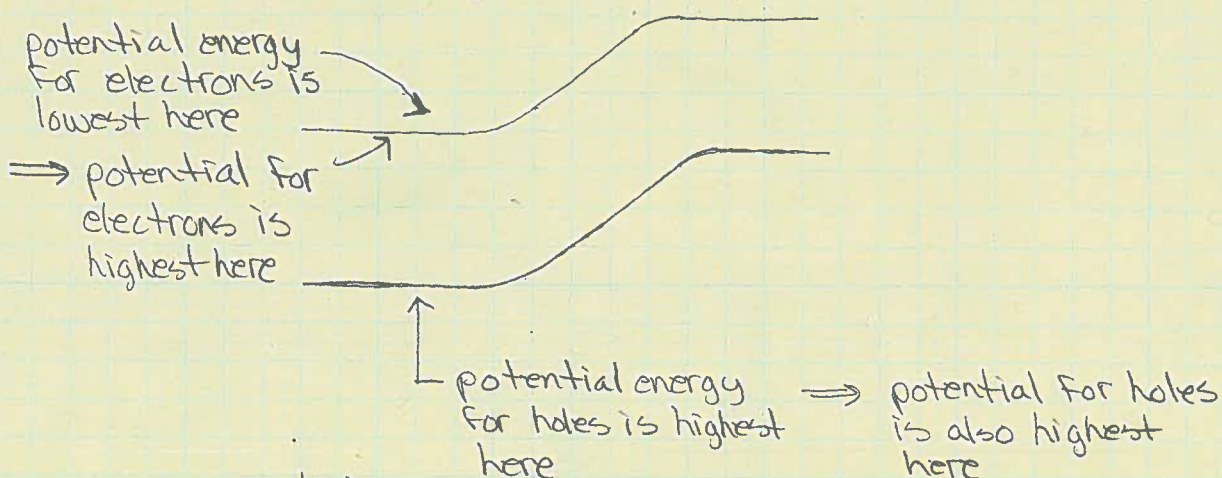 potential energy
for electrons is
lowest here
⇒ potential for
electrons is
highest here
potential energy
for holes is highest
here
⇒ potential for holes
is also highest
here